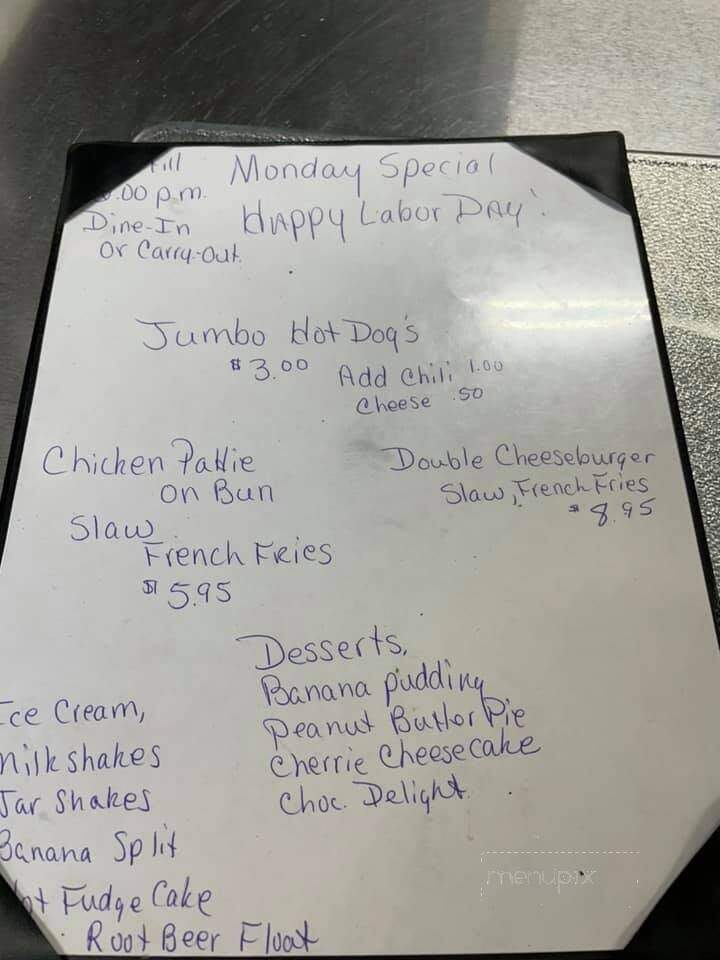 till
.00 p.m.
Dine-In
or Carry-out.
Monday Special
Happy Labor Day!
Jumbo Hot Dog's
$3.00 Add Chili 1.00
Cheese .50
Chicken Pattie
on Bun
Slaw
French Fries
$5.95
Double Cheeseburger
Slaw, French Fries
$8.95
Desserts,
Banana pudding
Peanut Butter Pie
Cherrie Cheesecake
Choc. Delight
Ice Cream,
Milkshakes
Jar Shakes
Banana Split
Hot Fudge Cake
Root Beer Float
menupix